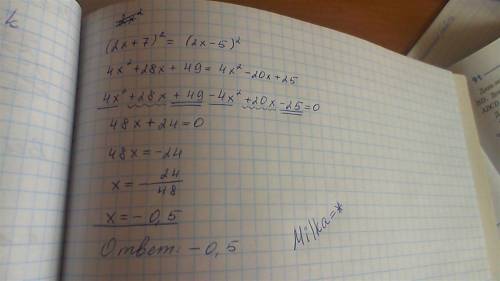 (2x+7)² = (2x-5)²
4x²+28x+49=4x²-20x+25
4x²+28x+49-4x²+20x-25=0
48x+24=0
48x=-24
x=-24/48
x=-0,5
Ответ: -0,5
Milka=*